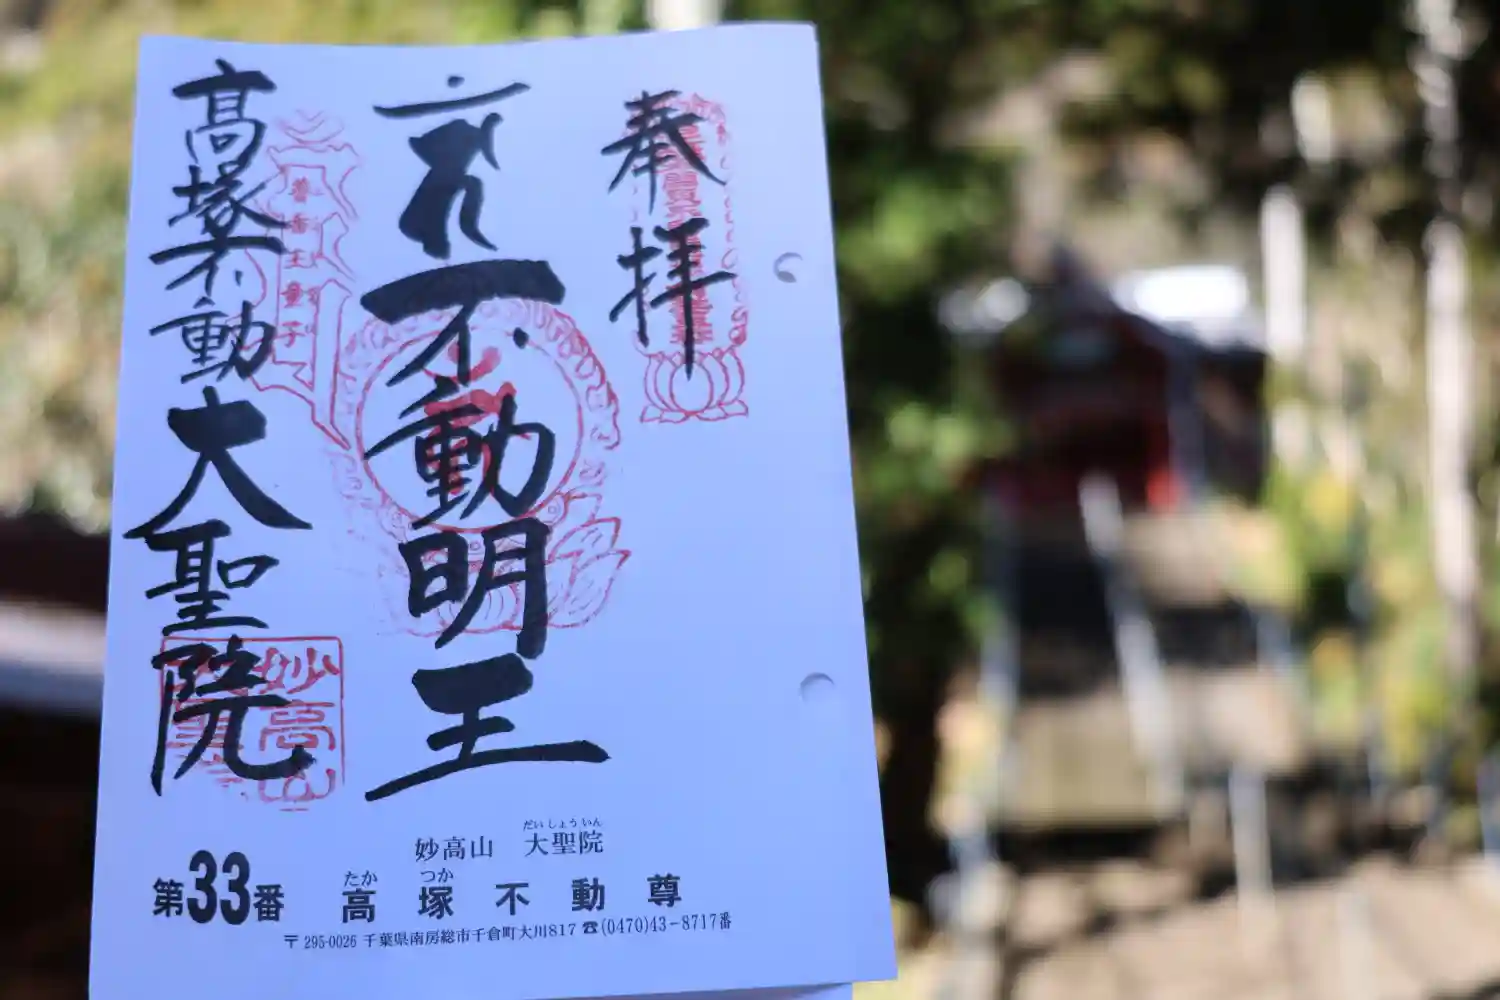 奉拝
不動明王
高塚不動
大聖院
普香王童子
妙高山
だいしょういん
妙高山 大聖院
たか つか
第33番 高塚不動尊
〒295-0026 千葉県南房総市千倉町大川817 ☎(0470)43-8717番